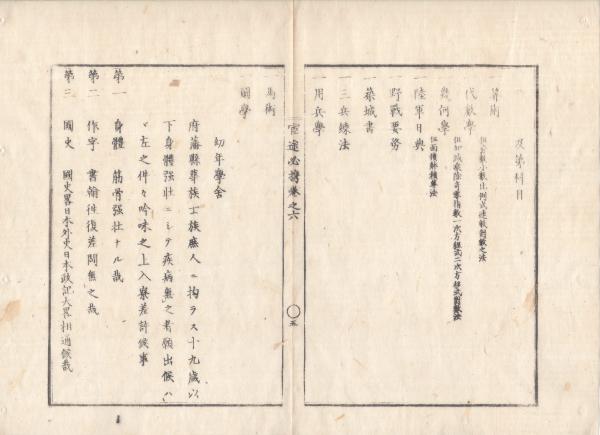 及第科目
算術
但分數小數比例式連數對數之法
代數學
但加減乘除奇零指數一次方程式二次方程式對數法
幾何學
但面積體積算法
一陸軍日典
一野戰要務
一築城書
一三兵練法
一用兵學
官途必携卷之六
五
馬術
圖學
幼年學舍
府藩縣華族士族庶人ニ拘ラス十九歲以
下身體强壯ニシテ疾病無之者願出候ハ
ヾ左之件々吟味之上入寮差許候事
第一 身體 筋骨强壯ナル哉
第二 作字 書翰往復差閊無之哉
第三 國史 國史畧日本外史日本政記大畧相通候哉